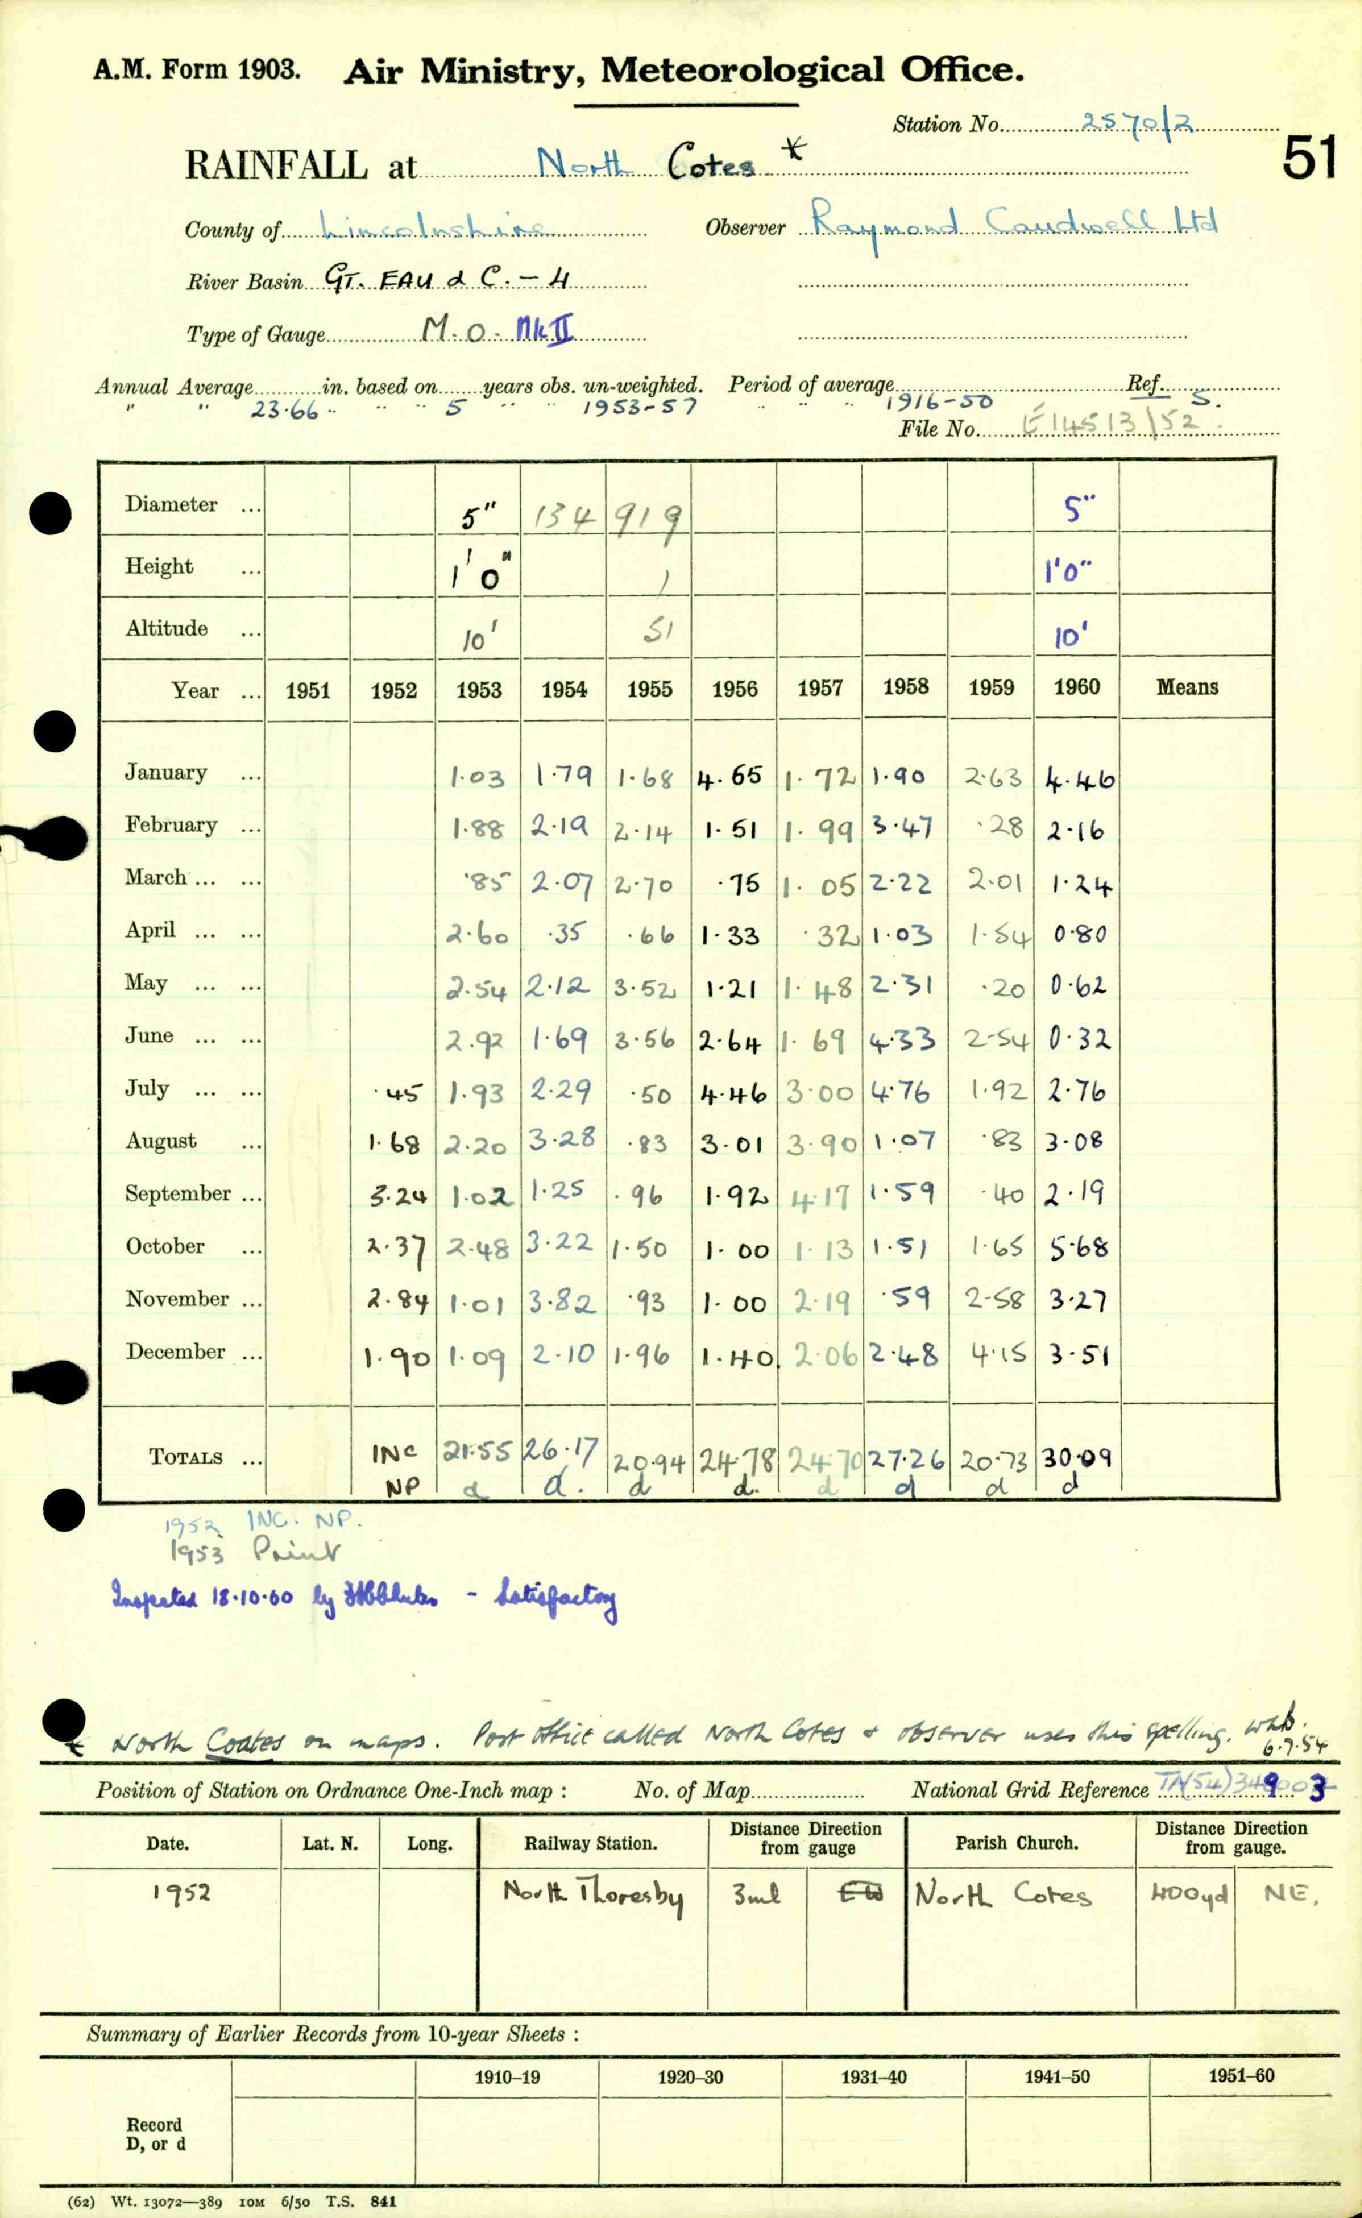 A.M. Form 1903. Air Ministry, Meteorological Office.
Station No. 2570/2
51
RAINFALL at North Cotes *
County of Lincolnshire Observer Raymond Caudwell Ltd
River Basin GT. EAU & C. - 4
Type of Gauge M.O. Mk II
Annual Average in. based on years obs. un-weighted. Period of average Ref.
" " 23.66 " " " 5 " " 1953-57 " " " 1916-50 S.
File No. E14513/52
Diameter ... 5" 134 919 5"
Height ... 1'0" 1 1'0"
Altitude ... 10' 51 10'
Year ... 1951 1952 1953 1954 1955 1956 1957 1958 1959 1960 Means
January ... 1.03 1.79 1.68 4.65 1.72 1.90 2.63 4.46
February ... 1.88 2.19 2.14 1.51 1.99 3.47 .28 2.16
March ... ... .85 2.07 2.70 .75 1.05 2.22 2.01 1.24
April ... ... 2.60 .35 .66 1.33 .32 1.03 1.54 0.80
May ... ... 2.54 2.12 3.52 1.21 1.48 2.31 .20 0.62
June ... ... 2.92 1.69 3.56 2.64 1.69 4.33 2.54 0.32
July ... ... .45 1.93 2.29 .50 4.46 3.00 4.76 1.92 2.76
August ... 1.68 2.20 3.28 .83 3.01 3.90 1.07 .83 3.08
September ... 3.24 1.02 1.25 .96 1.92 4.17 1.59 .40 2.19
October ... 2.37 2.48 3.22 1.50 1.00 1.13 1.51 1.65 5.68
November ... 2.84 1.01 3.82 .93 1.00 2.19 .59 2.58 3.27
December ... 1.90 1.09 2.10 1.96 1.40 2.06 2.48 4.15 3.51
TOTALS ... INC 21.55 26.17 20.94 24.78 24.70 27.26 20.73 30.09
NP d d. d d. d d d d
1952 INC. NP.
1953 Print
Inspected 18.10.60 by - Satisfactory
* North Coates on maps. Post Office called North Cotes & observer uses this spelling.
6.9.54
Position of Station on Ordnance One-Inch map : No. of Map National Grid Reference TA(54) 3 9 00 3
Date. Lat. N. Long. Railway Station. Distance from Direction gauge Parish Church. Distance from Direction gauge.
1952 North Thoresby 3ml North Cotes 400yd NE.
Summary of Earlier Records from 10-year Sheets :
1910–19 1920–30 1931–40 1941–50 1951–60
Record
D, or d
(62) Wt. 13072—389 10M 6/50 T.S. 841